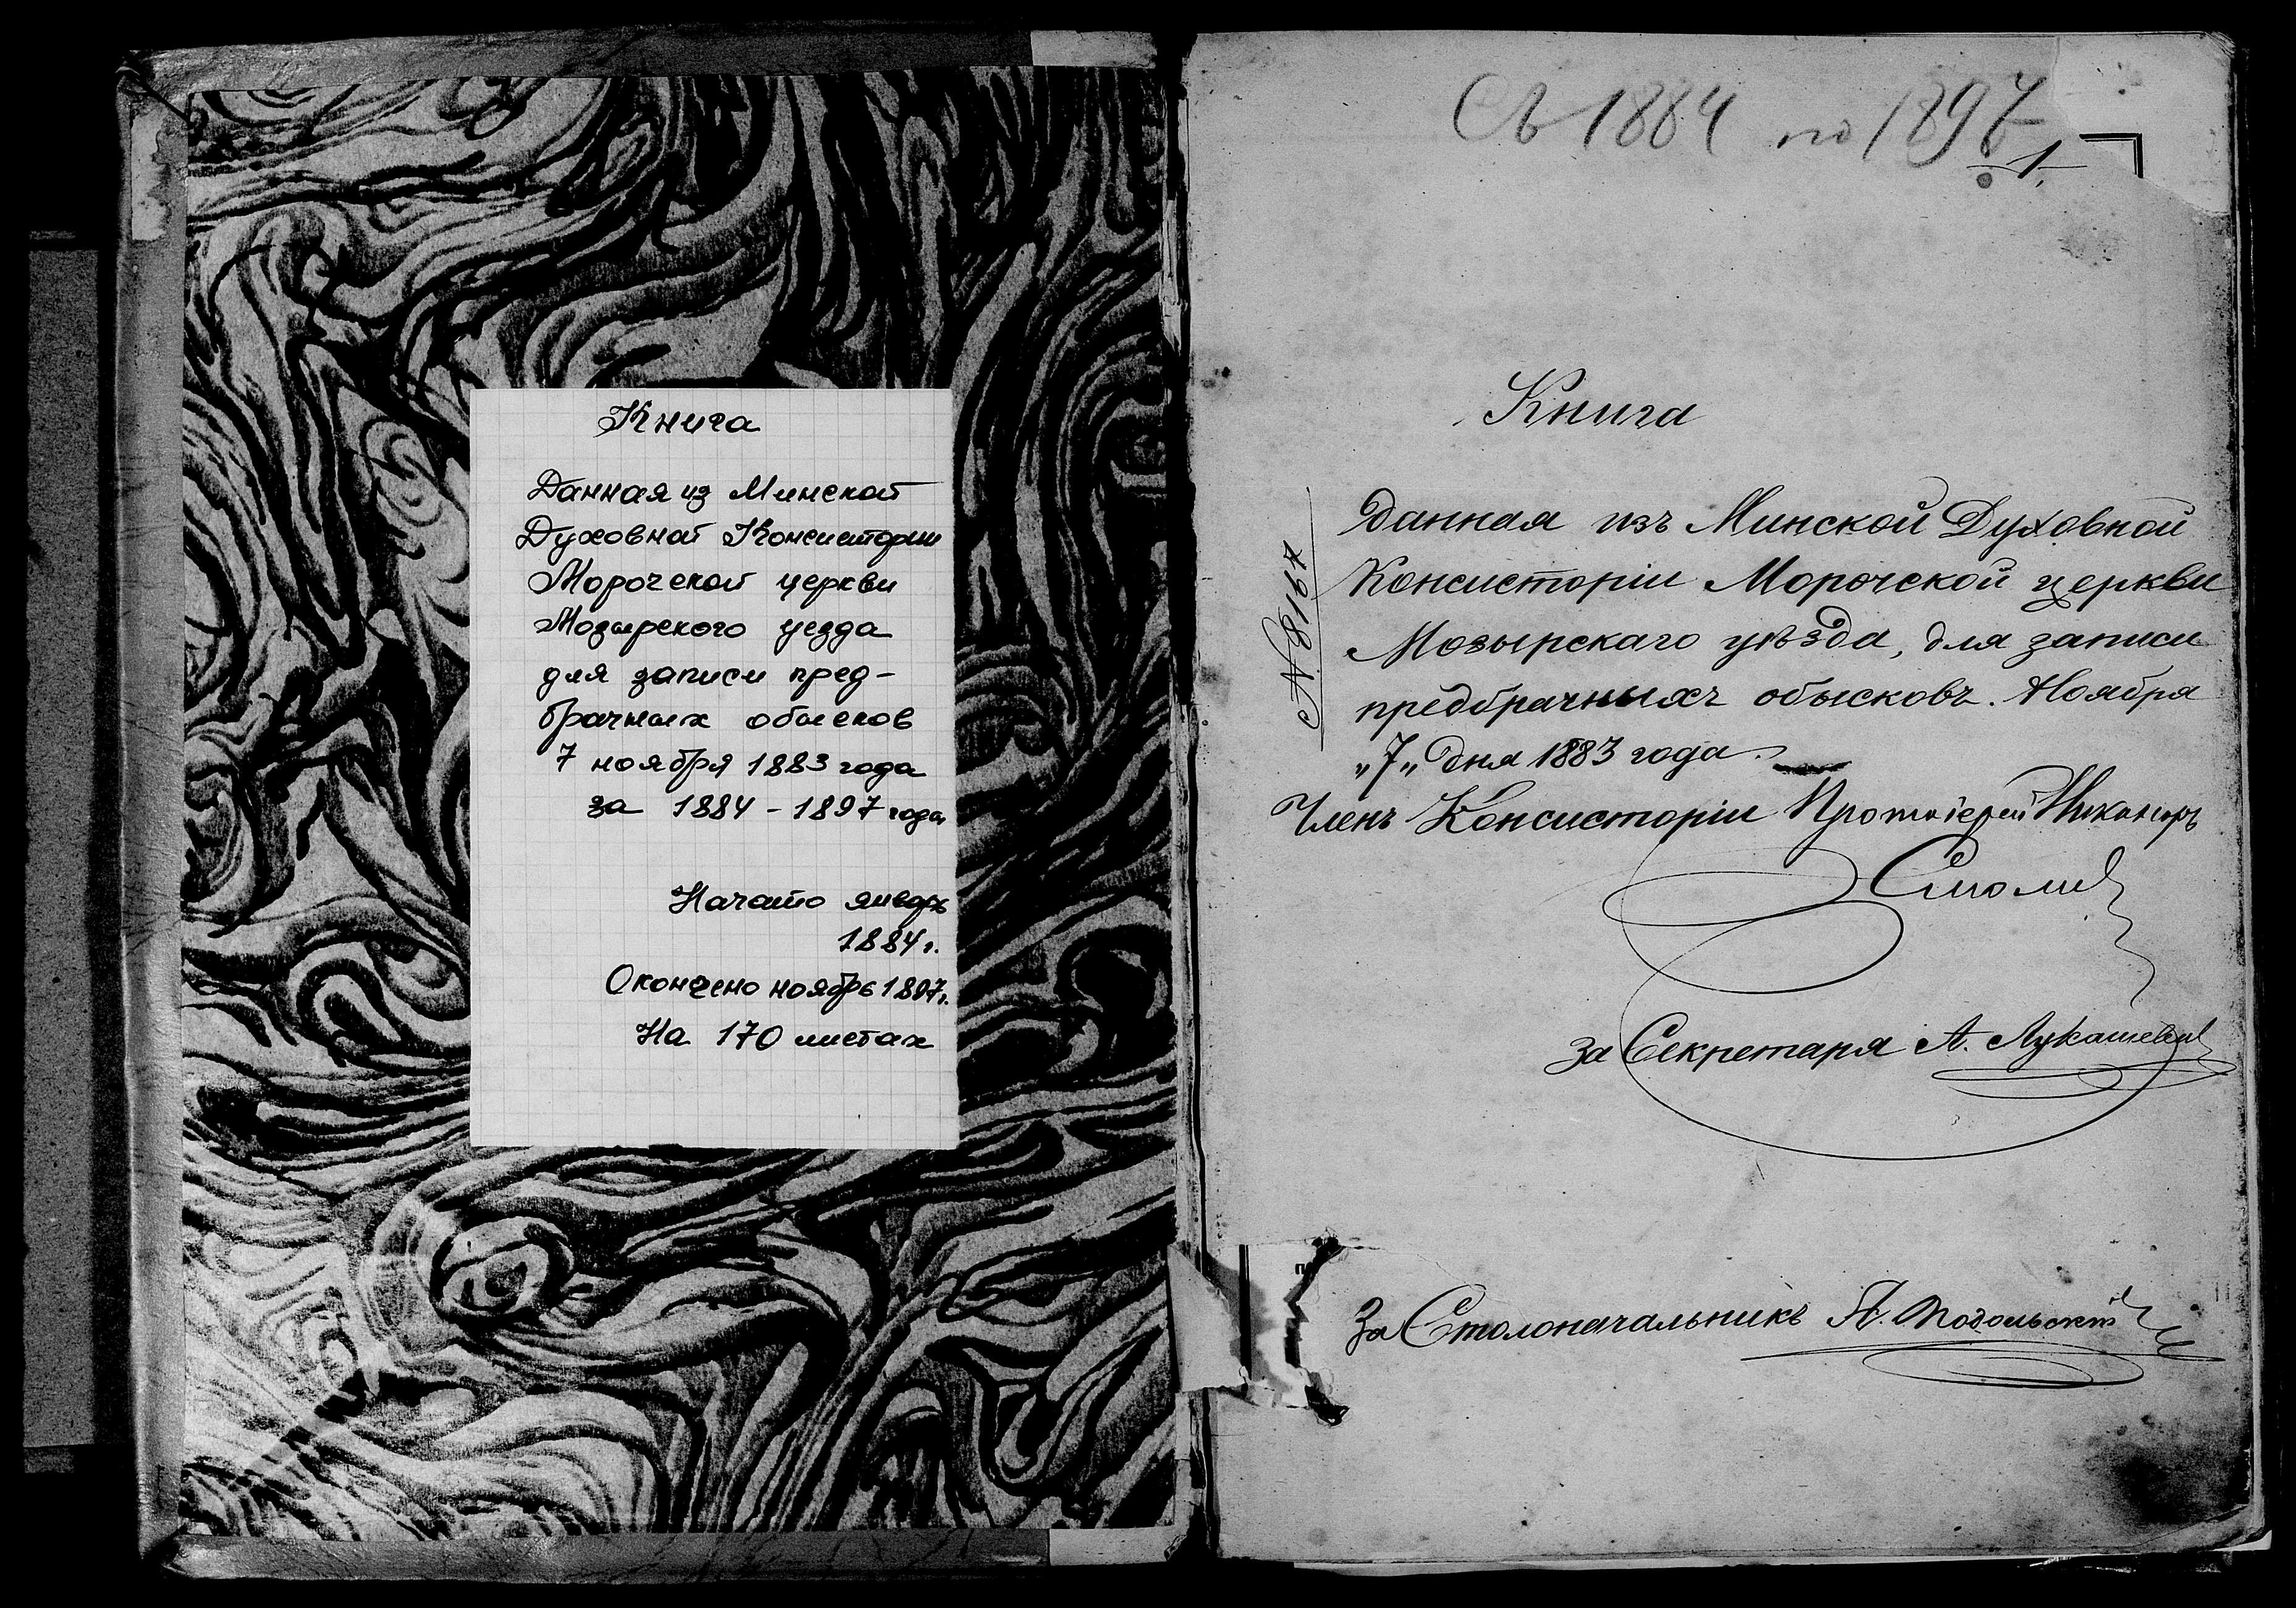 Книга
Данная из Минской
Духовной Консистории
Морочской церкви
Мозырского уезда
для записи пред-
брачных обысков
7 ноября 1883 года
за 1884-1897 года
Начато январь
1884 г.
Окончено ноябрь 1897 г.
На 170 листах
Съ 1884 по 1897
1.
Книга
№ 8167
данная изъ Минской Духовной
Консисторіи Морочской церкви
Мозырскаго уѣзда, для записи
предбрачныхъ обысковъ. Ноября
„7„ дня 1883 года.
Членъ Консисторіи Протоіерей Никаноръ
Смолич
За Секретаря А. Лукашевич
За Столоначальникъ А. Подольскій